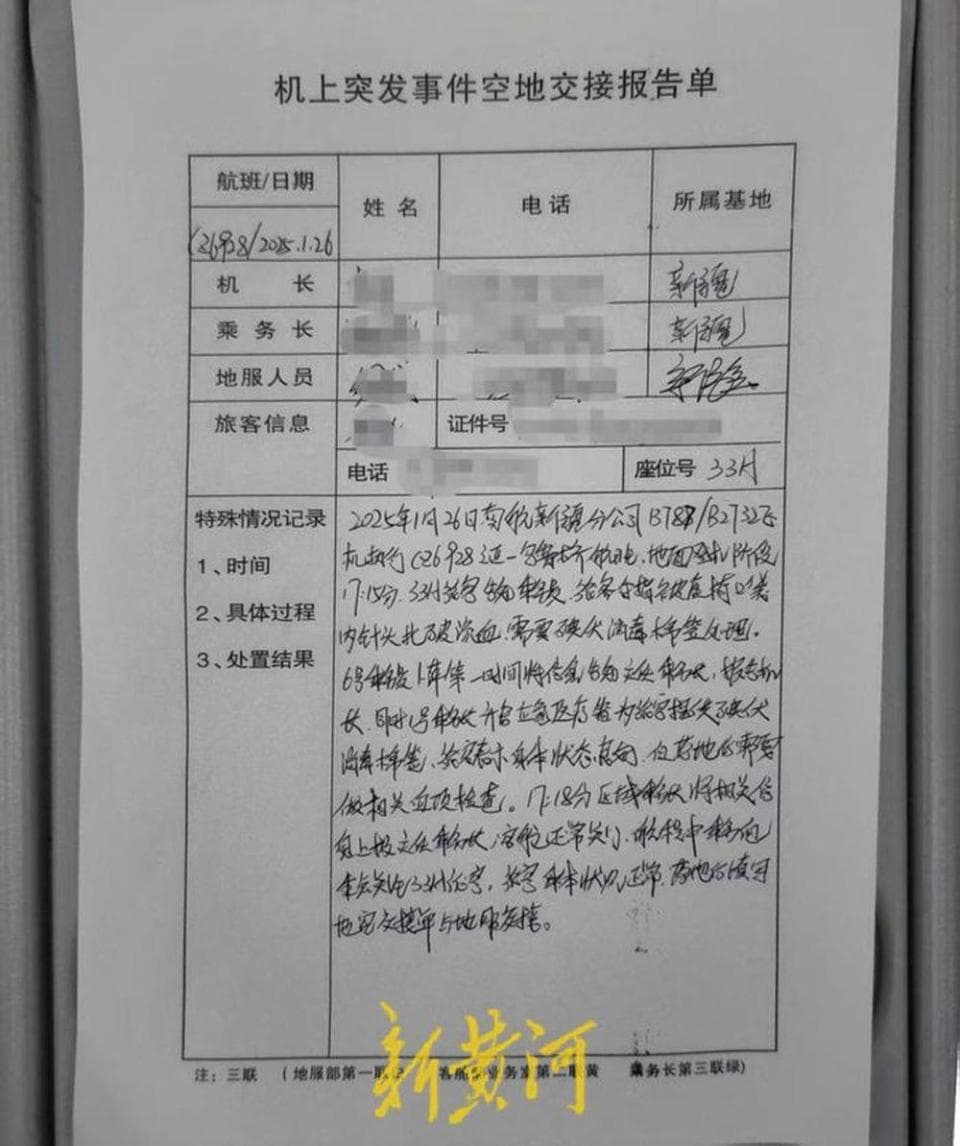 机上突发事件空地交接报告单
航班/日期 姓名 电话 所属基地
CZ6928/2025.1.26
机 长 新疆
乘 务 长 新疆
地服人员
旅客信息 证件号
电话 座位号 33H
特殊情况记录
1、时间
2、具体过程
3、处置结果
2025年1月26日南航新疆分公司B787/B2732飞
机执行CZ6928 航班,地面 阶段
17:15分,33H旅客告知乘务员,旅客手指被座椅口袋
内针头扎破流血,需要碘伏消毒棉签处理。
6号乘务员 第一时间将信息告知主任乘务长,报告机
长,同时1号乘务长开启应急医疗箱为旅客提供碘伏
消毒棉签,旅客表示身体状态良好,但落地后需要
做相关血项检查。17:18分区域乘务长将相关信
息上报主任乘务长,客舱正常关门,航程中乘务组
重点关注33H旅客,旅客身体状况正常,落地后填写
地空交接单与地服交接。
注:三联 (地服部第一联 客舱 业务室第二联黄 乘务长第三联绿)
新黄河